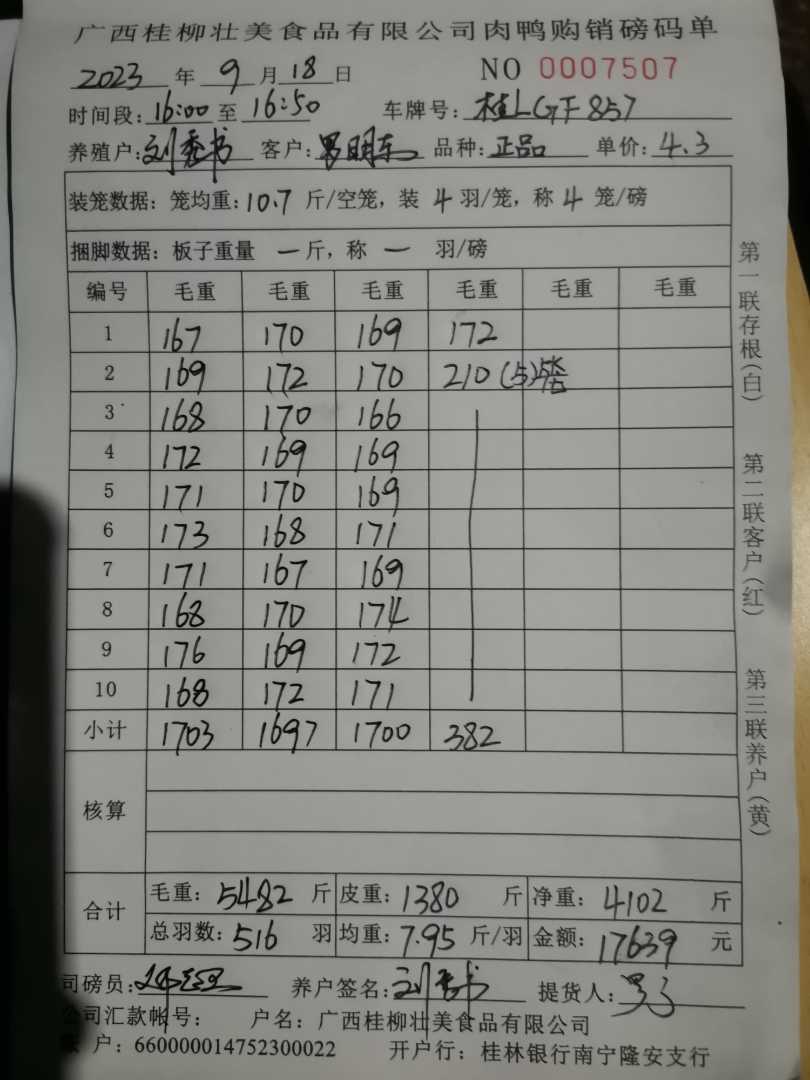 广西桂柳壮美食品有限公司肉鸭购销磅码单
2023 年 9 月 18 日 NO 0007507
时间段: 16:00 至 16:50 车牌号: 桂LGF857
养殖户: 刘秀书 客户: 明东 品种: 正品 单价: 4.3
装笼数据: 笼均重: 10.7 斤/空笼, 装 4 羽/笼, 称 4 笼/磅
捆脚数据: 板子重量 一 斤, 称 一 羽/磅
编号 毛重 毛重 毛重 毛重 毛重 毛重
1 167 170 169 172
2 169 172 170 210 (5)
3 168 170 166
4 172 169 169
5 171 170 169
6 173 168 171
7 171 167 169
8 168 170 174
9 176 169 172
10 168 172 171
小计 1703 1697 1700 382
核算
合计 毛重: 5482 斤 皮重: 1380 斤 净重: 4102 斤
总羽数: 516 羽 均重: 7.95 斤/羽 金额: 17639 元
司磅员: 养户签名: 刘秀书 提货人:
公司汇款帐号: 户名: 广西桂柳壮美食品有限公司
户: 660000014752300022 开户行: 桂林银行南宁隆安支行
第一联存根(白)
第二联客户(红)
第三联养户(黄)